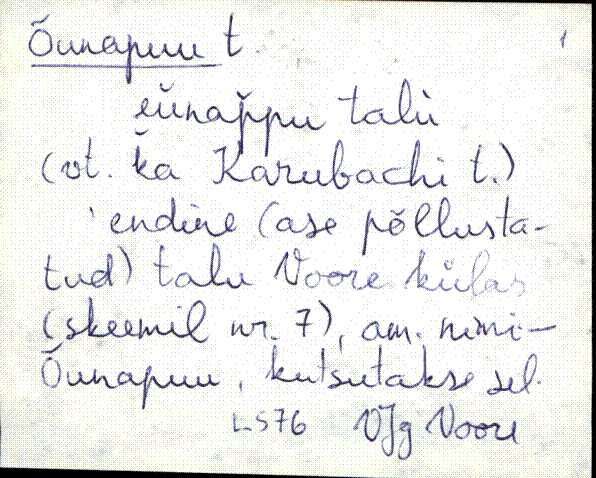 Õunapuu t. 1
eŭnappu talù
(vt. ka Karubachi t.)
'endine (ase põllusta-
tud) talu Voore külas
(skeemil nr. 7), am. nimi-
Õunapuu, kutsutakse sel.
LS76 VJg Voore